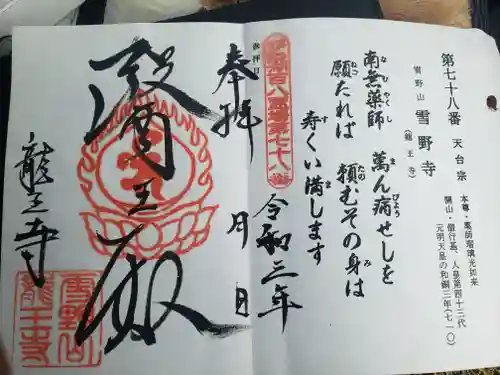 第七十八番 天台宗
雪野山 雪野寺
(龍王寺)
本尊・薬師瑠璃光如来
開山・僧行基、人皇第四十三代
元明天皇の和銅三年(七一〇)
南無薬師 萬ん病せしを
なむやくし まん びょう
願たれば 頼むその身は
ねご たの み
寿くい満します
す ま
令和三年
百八霊場第七十八番
奉拝 月 日
龍王寺
雪野山
龍王寺